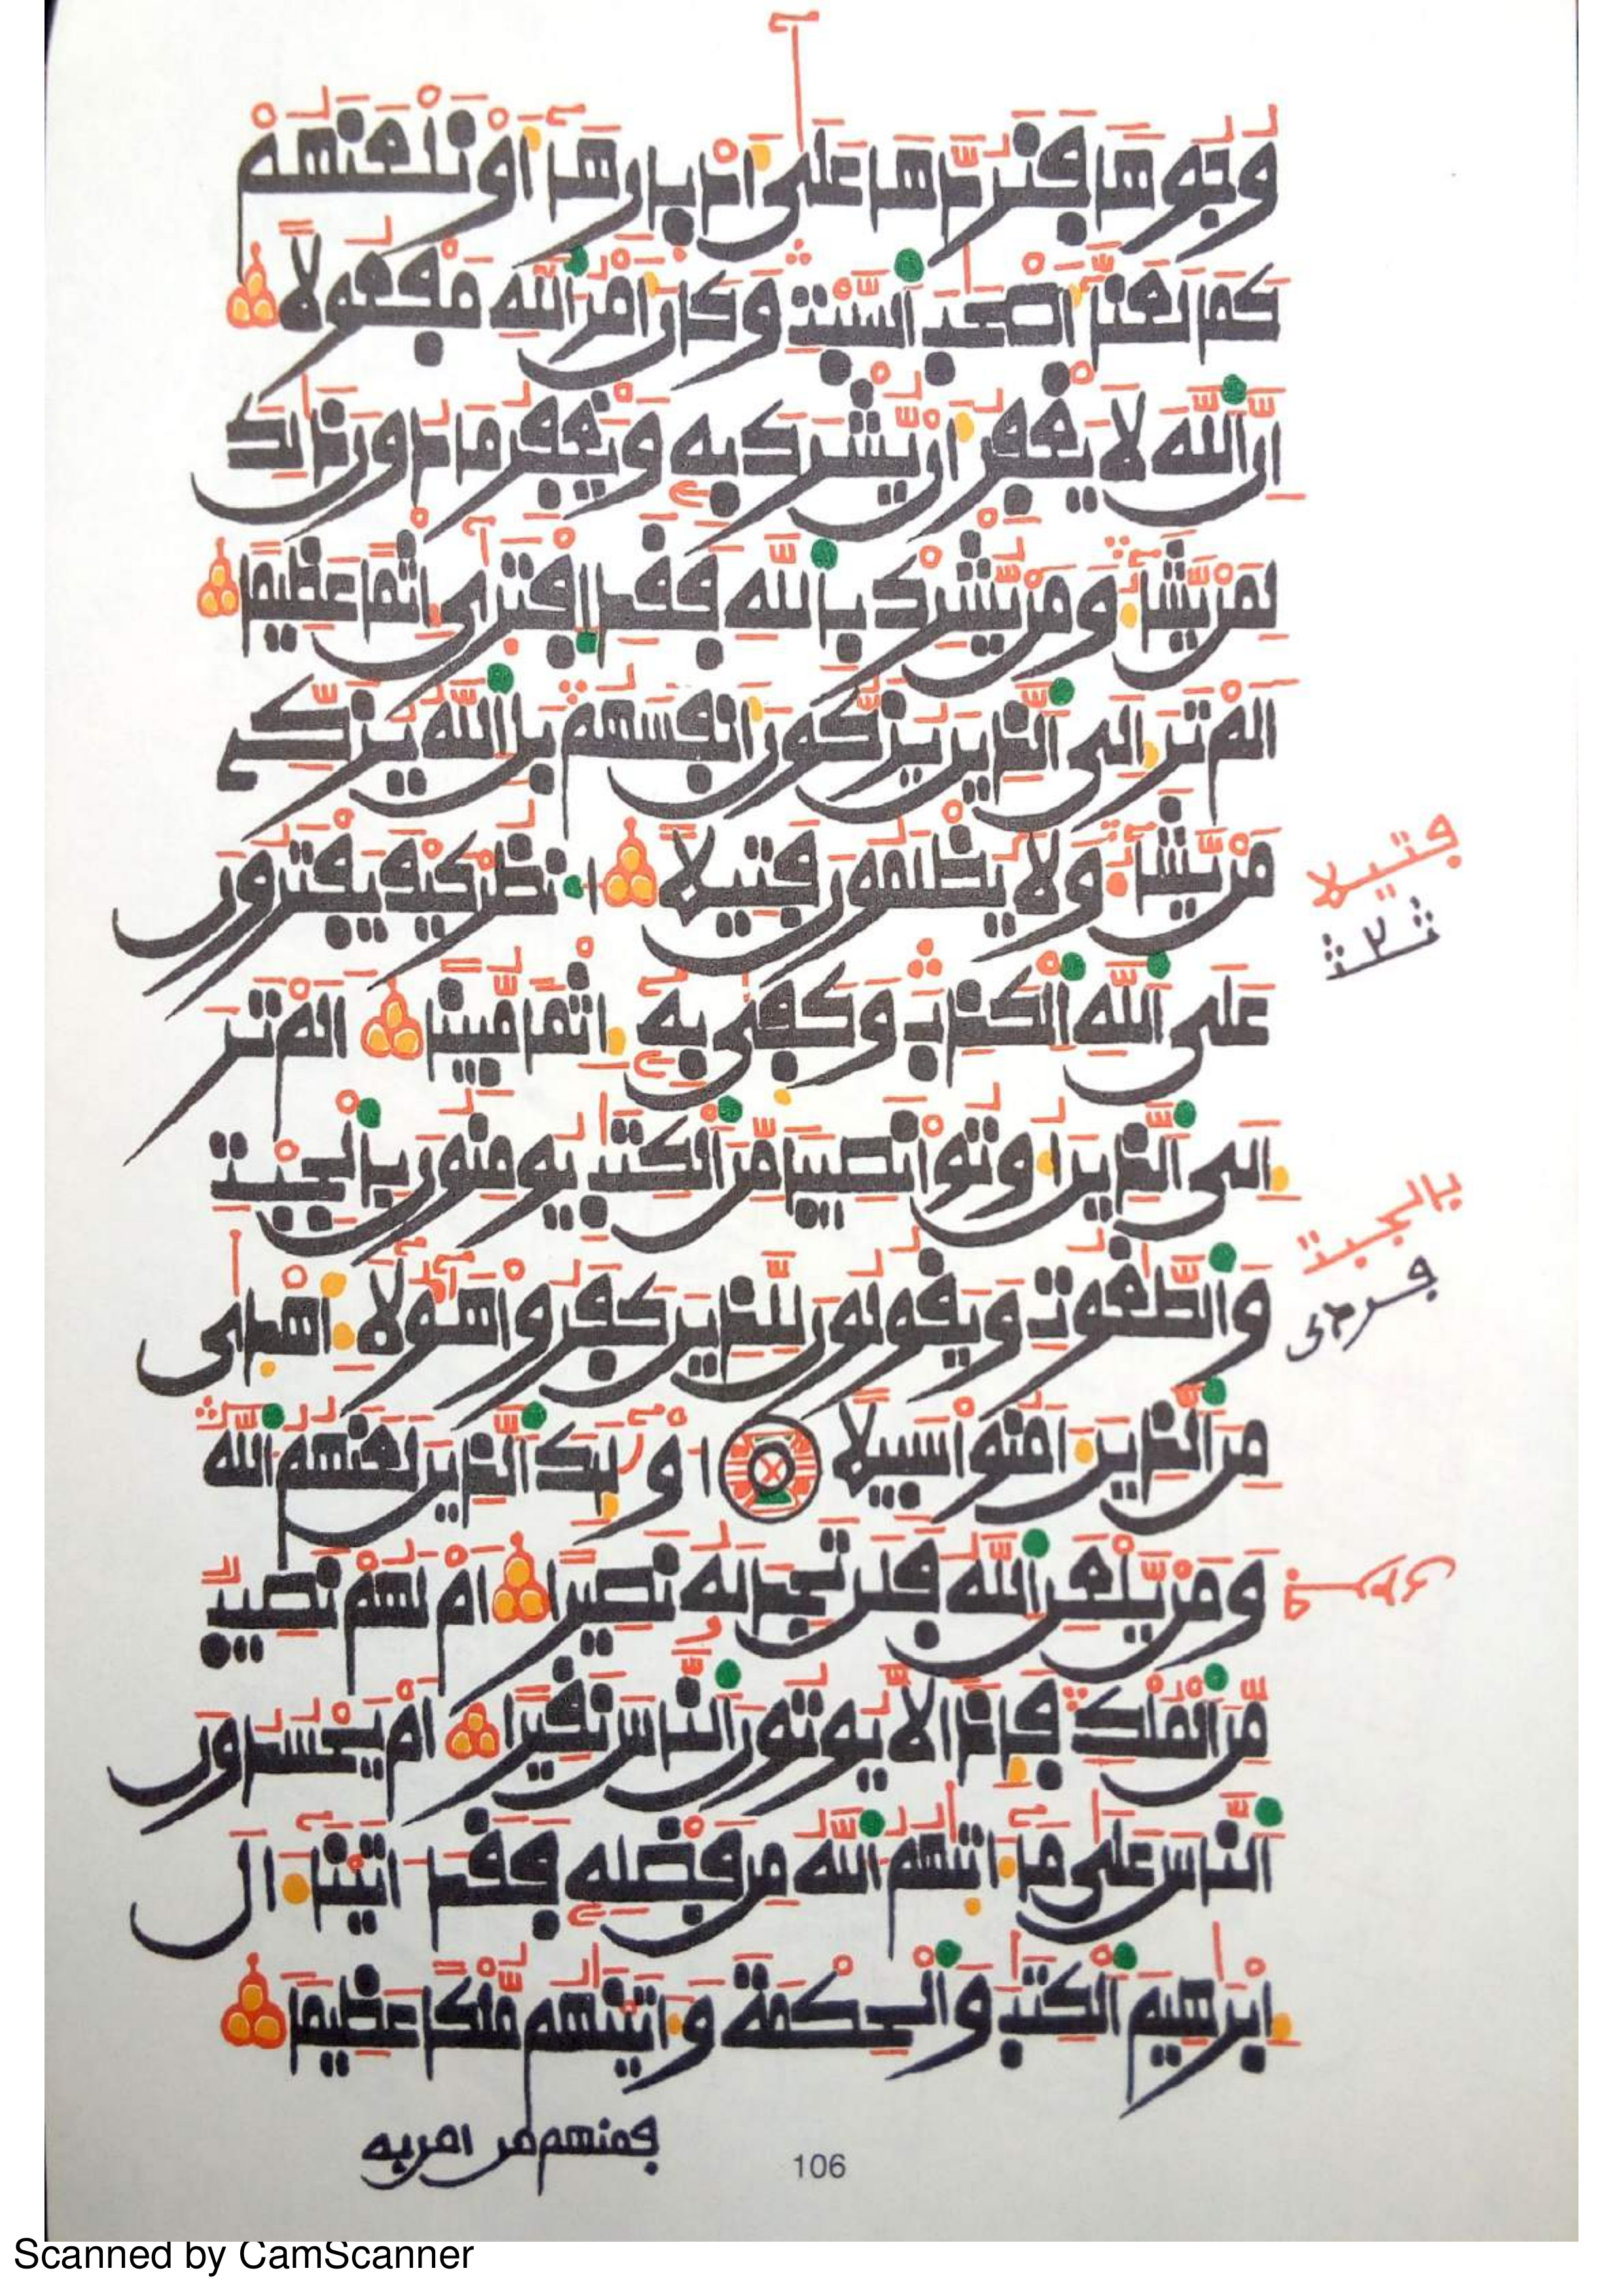 وُجُوهًا فَنَرُدَّهَا عَلَىٰ أَدْبٰرِهَآ أَوْ نَلْعَنَهُمْ
كَمَا لَعَنَّا أَصْحَٰبَ ٱلسَّبْتِ وَكَانَ أَمْرُ ٱللَّهِ مَفْعُولًا
إِنَّ ٱللَّهَ لَا يَغْفِرُ أَنْ يُّشْرَكَ بِهِ وَيَغْفِرُ مَا دُونَ ذَٰلِكَ
لِمَنْ يَّشَآءُ وَمَنْ يُّشْرِكْ بِٱللَّهِ فَقَدِ ٱفْتَرَىٰٓ إِثْمًا عَظِيمًا
أَلَمْ تَرَ إِلَى ٱلَّذِينَ يُزَكُّونَ أَنفُسَهُمْ بَلِ ٱللَّهُ يُزَكِّے
مَنْ يَّشَآءُ وَلَا يُظْلَمُونَ فَتِيلًا ٱنظُرْ كَيْفَ يَفْتَرُونَ
عَلَى ٱللَّهِ ٱلْكَذِبَ وَكَفَىٰ بِهِۦٓ إِثْمًا مُّبِينًا أَلَمْ تَرَ
إِلَى ٱلَّذِينَ أُوتُوا نَصِيبًا مِّنَ ٱلْكِتَٰبِ يُومِنُونَ بِٱلْجِبْتِ
وَٱلطَّٰغُوتِ وَيَقُولُونَ لِلَّذِينَ كَفَرُوا هَٰٓؤُلَآءِ أَهْدَىٰ
مِنَ ٱلَّذِينَ ءَامَنُوا سَبِيلًا أُوْلَٰٓئِكَ ٱلَّذِينَ لَعَنَهُمُ ٱللَّهُ
وَمَنْ يَّلْعَنِ ٱللَّهُ فَلَن تَجِدَ لَهُ نَصِيرًا أَمْ لَهُمْ نَصِيبٌ
مِّنَ ٱلْمُلْكِ فَإِذًا لَّا يُوتُونَ ٱلنَّاسَ نَقِيرًا أَمْ يَحْسُدُونَ
ٱلنَّاسَ عَلَىٰ مَآ ءَاتَىٰهُمُ ٱللَّهُ مِن فَضْلِهِۦ فَقَدَ ءَاتَيْنَآ ءَالَ
إِبْرَٰهِيمَ ٱلْكِتَٰبَ وَٱلْحِكْمَةَ وَءَاتَيْنَٰهُم مُّلْكًا عَظِيمًا
فتيلا
ثلث
بالجبت
فردى
فمنهم من امن به
106
Scanned by CamScanner